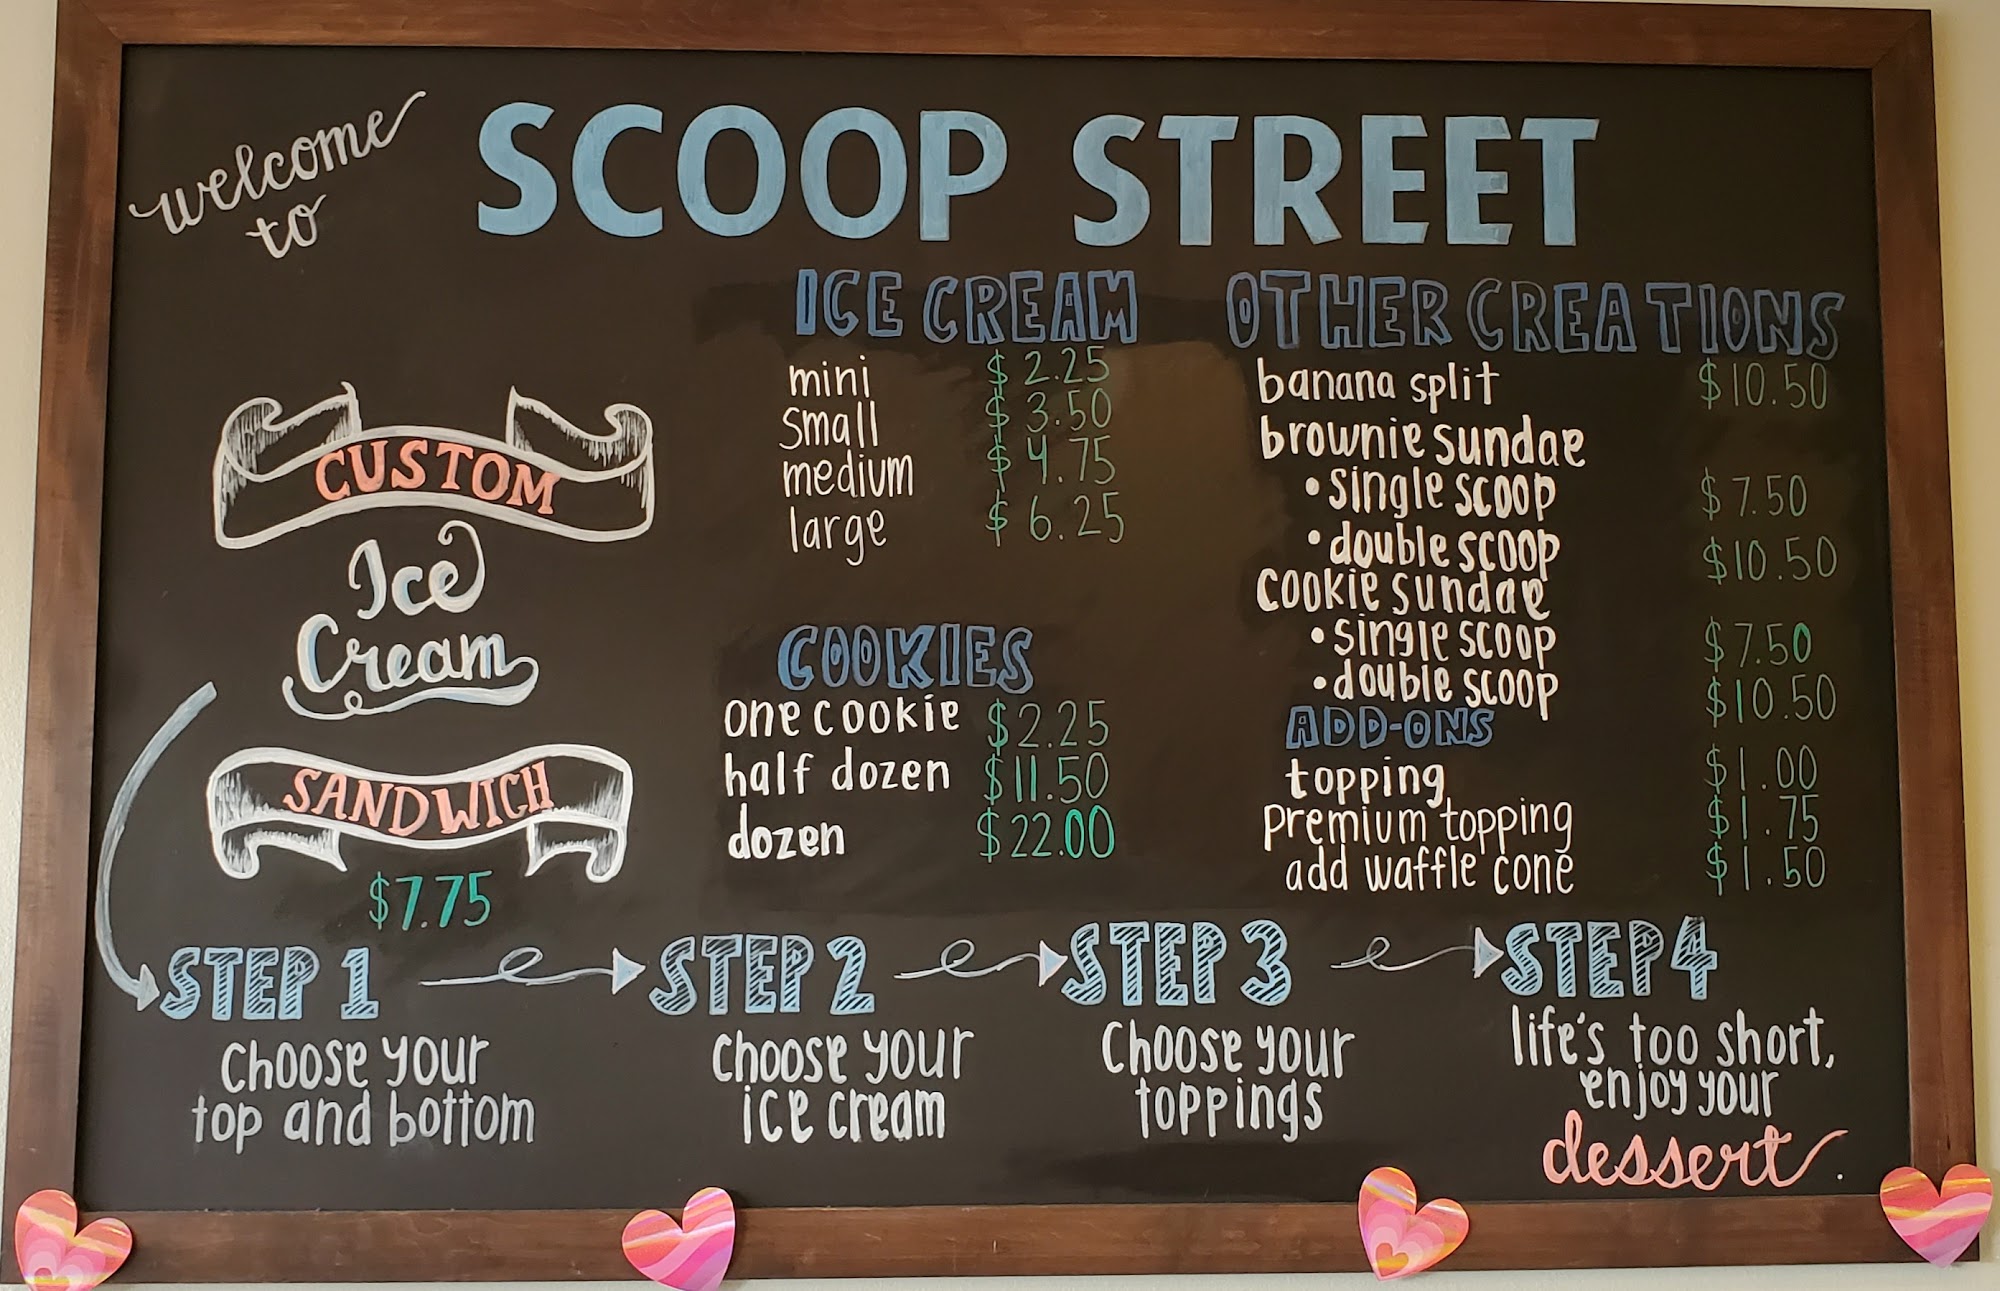 welcome
to
SCOOP STREET
CUSTOM
Ice
Cream
SANDWICH
$7.75
ICE CREAM
mini $2.25
small $3.50
medium $4.75
large $6.25
COOKIES
one cookie $2.25
half dozen $11.50
dozen $22.00
OTHER CREATIONS
banana split $10.50
brownie sundae
• single scoop $7.50
• double scoop $10.50
cookie sundae
• single scoop $7.50
• double scoop $10.50
ADD-ONS
topping $1.00
premium topping $1.75
add waffle cone $1.50
STEP 1
choose your
top and bottom
STEP 2
choose your
ice cream
STEP 3
choose your
toppings
STEP 4
life's too short,
enjoy your
dessert.